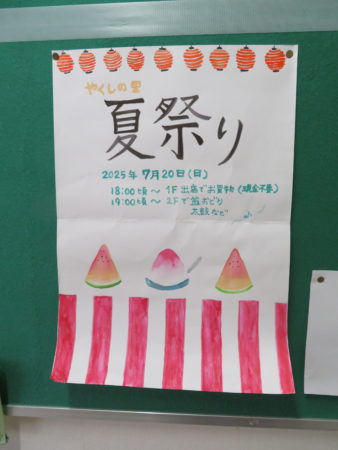 やくしの里
夏祭り
2025年 7月20日(日)
18:00頃 〜 1F 出店でお買物 (現金不要)
19:00頃 〜 2Fで盆おどり
太鼓など